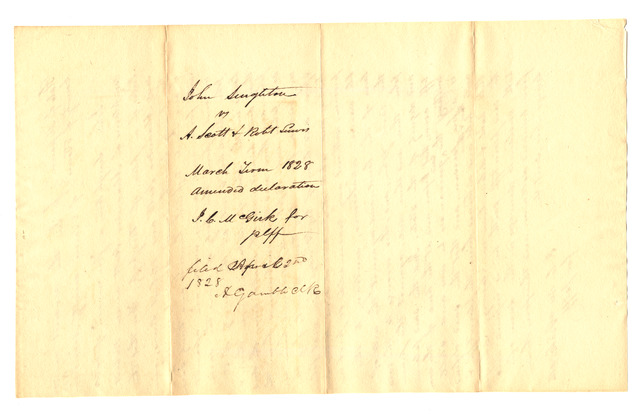 John Singleton
vs
A. Scott & Robt Lewis
March Term 1828
amended declaration
I. C. McGirk for
plff
filed April 2nd
1828
A Gamble Clk